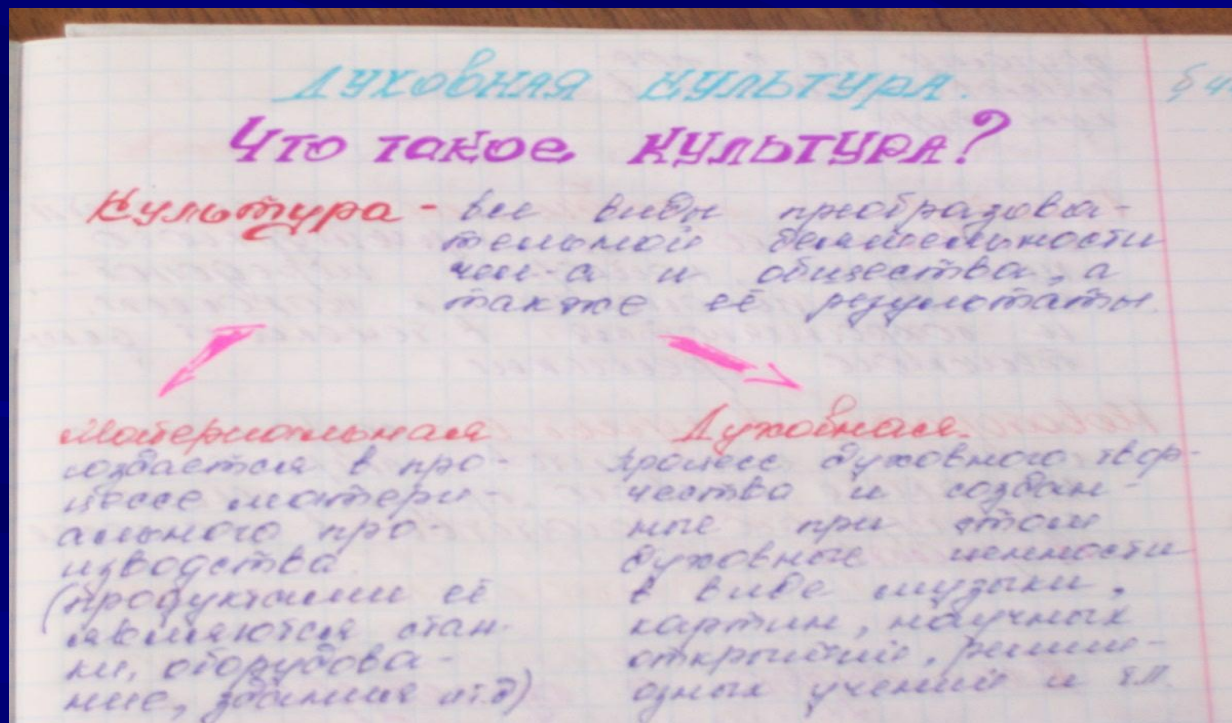 ДУХОВНАЯ КУЛЬТУРА.
§4
Что такое КУЛЬТУРА?
Культура - все виды преобразова-
тельной деятельности
чел-а и общества, а
также её результаты.
Материальная
создается в про-
цессе матери-
ального про-
изводства
(продуктами её
являются стан-
ки, оборудова-
ние, здания и т.д)
Духовная
процесс духовного твор-
чества и создан-
ные при этом
духовные ценности
в виде музыки,
картин, научных
открытий, религи-
озных учений и т.п.